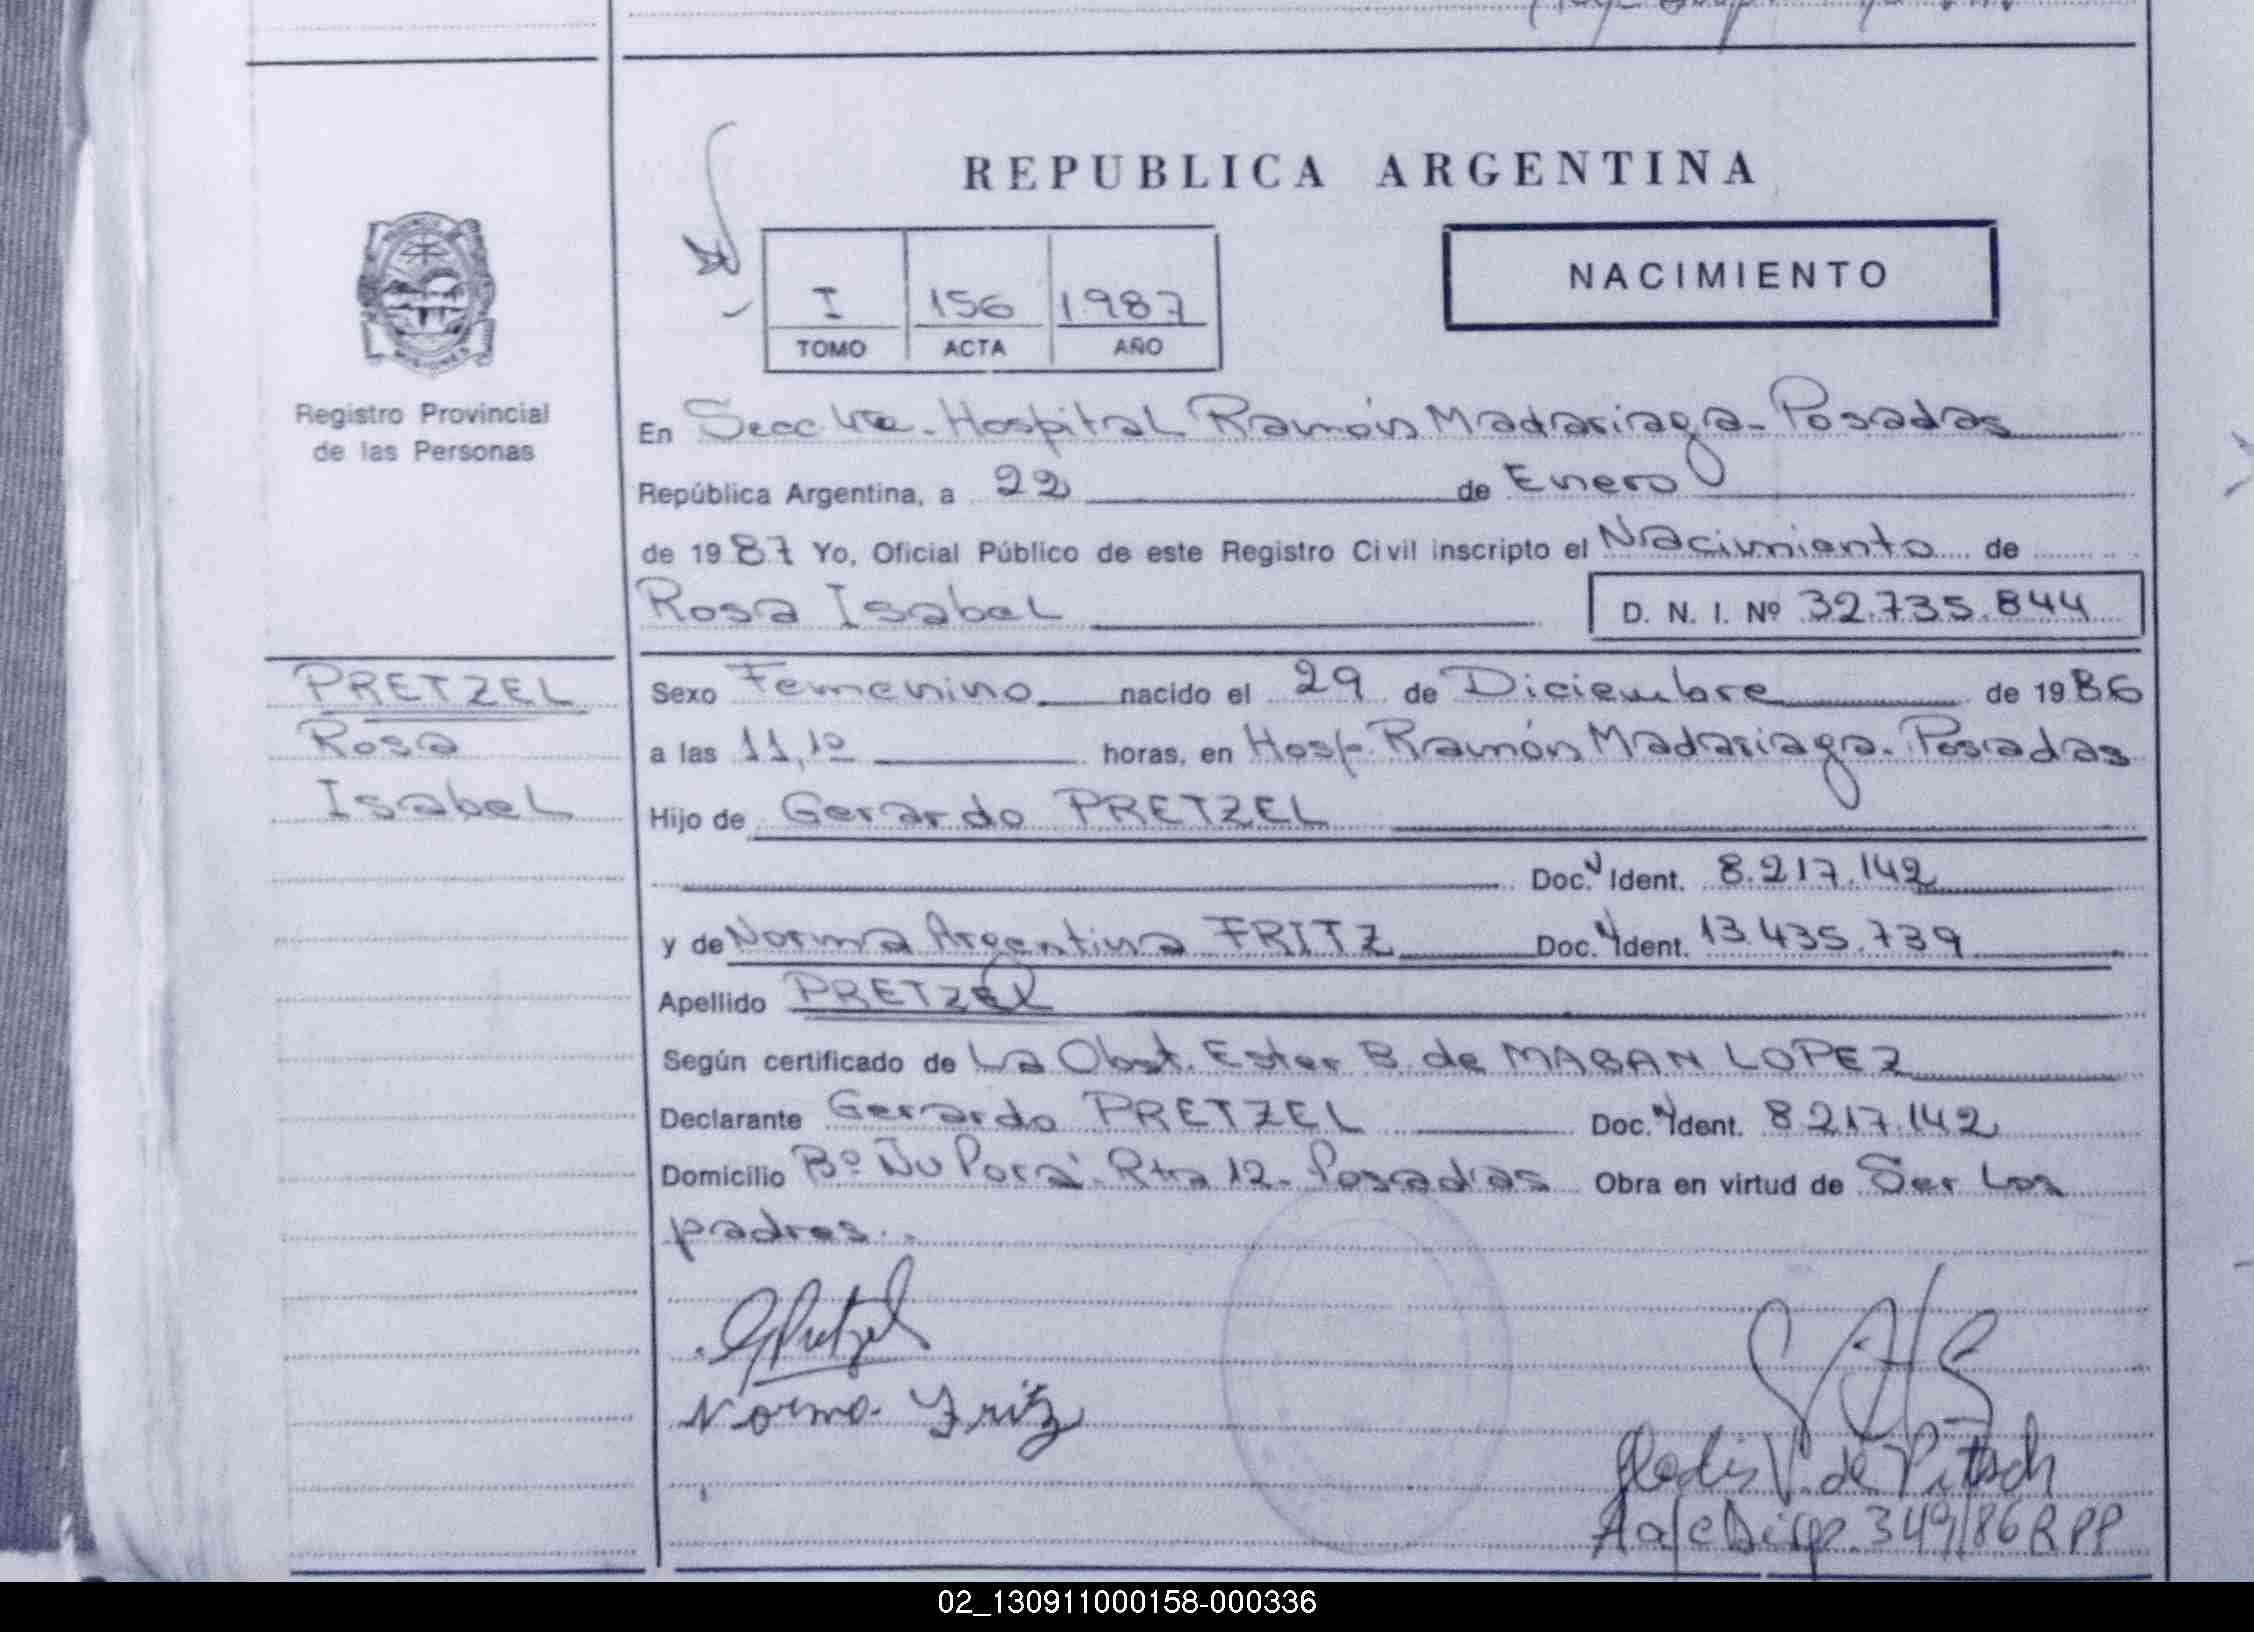 REPUBLICA ARGENTINA
NACIMIENTO
I 156 1987
TOMO ACTA AÑO
Registro Provincial
de las Personas
En Secc 4ta. Hospital Ramón Madariaga - Posadas
República Argentina, a 22 de Enero
de 1987 Yo, Oficial Público de este Registro Civil inscripto el Nacimiento de
Rosa Isabel
D. N. I. Nº 32.735.844
PRETZEL
Rosa
Isabel
Sexo Femenino nacido el 29 de Diciembre de 1986
a las 11,10 horas, en Hosp. Ramón Madariaga - Posadas
Hijo de Gerardo PRETZEL
Doc. Ident. 8.217.142
y de Norma Argentina FRITZ Doc. Ident. 13.435.739
Apellido PRETZEL
Según certificado de La Obst. Ester B. de MABAN LOPEZ
Declarante Gerardo PRETZEL Doc. Ident. 8.217.142
Domicilio Bº Ñu Porá - Rta 12 - Posadas Obra en virtud de Ser Los
padres.
GPretzel
Norma Fritz
Gladis V. de Pitsch
A a/c Disp. 349/86 RPP
02_130911000158-000336